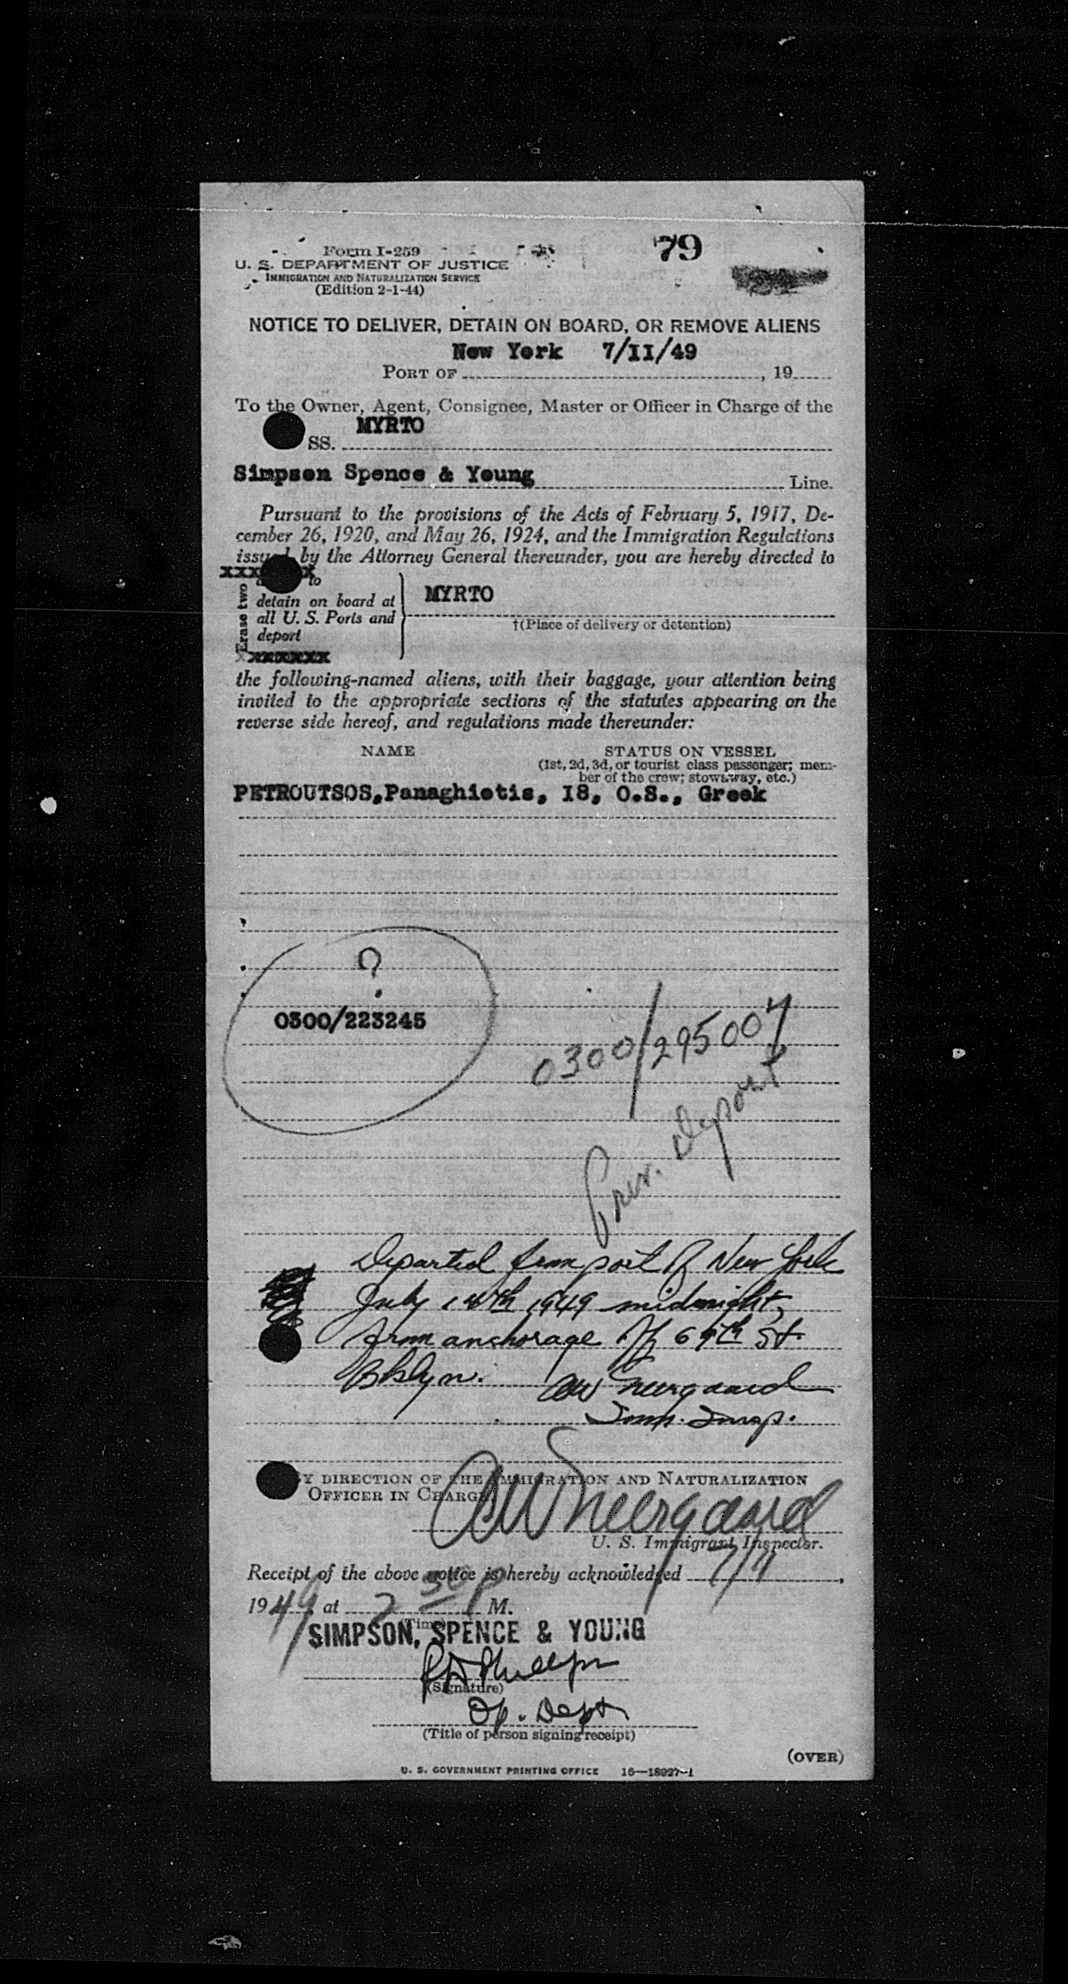 79
Form I-259
U. S. DEPARTMENT OF JUSTICE
IMMIGRATION AND NATURALIZATION SERVICE
(Edition 2-1-44)
NOTICE TO DELIVER, DETAIN ON BOARD, OR REMOVE ALIENS
New York 7/II/49
PORT OF , 19
To the Owner, Agent, Consignee, Master or Officer in Charge of the
MYRTO
SS.
Simpson Spence & Young Line.
Pursuant to the provisions of the Acts of February 5, 1917, De-
cember 26, 1920, and May 26, 1924, and the Immigration Regulations
issued by the Attorney General thereunder, you are hereby directed to
Erase two
to
detain on board at
all U. S. Ports and
deport
MYRTO
†(Place of delivery or detention)
the following-named aliens, with their baggage, your attention being
invited to the appropriate sections of the statutes appearing on the
reverse side hereof, and regulations made thereunder:
NAME STATUS ON VESSEL
(1st, 2d, 3d, or tourist class passenger; mem-
ber of the crew; stowaway, etc.)
PETROUTSOS, Panaghiotis, I8, O.S., Greek
?
0300/223245
0300/295007
Prev. Deport
Departed from port of New York
July 14th 1949 midnight,
from anchorage off 69th St.
Bklyn. AW Neergaard
Imm. Insp.
BY DIRECTION OF THE IMMIGRATION AND NATURALIZATION
OFFICER IN CHARGE
AW Neergaard
U. S. Immigrant Inspector.
Receipt of the above notice is hereby acknowledged 7/11,
1949 at 2 30 P M.
(Time)
SIMPSON, SPENCE & YOUNG
(Signature)
Op. Dept
(Title of person signing receipt)
(OVER)
U. S. GOVERNMENT PRINTING OFFICE 16—18927-1